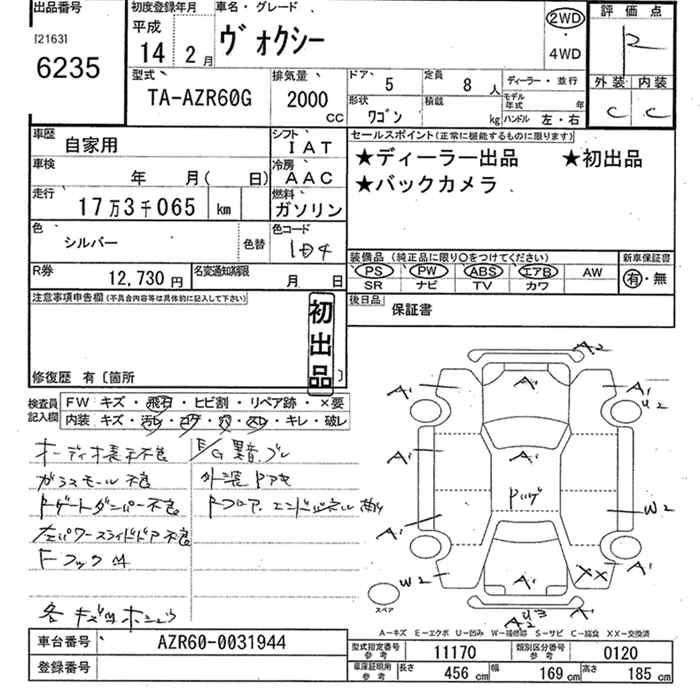 出品番号
[2163]
6235
初度登録年月
平成
14 2月
車名・グレード
ヴォクシー
2WD
・
4WD
評価点
R
外装 内装
C C
型式
TA-AZR60G
排気量
2000
CC
ドア 5
定員 8人
形状 ワゴン
積載 kg
ディーラー・並行
モデル年式 年
ハンドル 左・右
車歴 自家用
シフト IAT
車検 年 月( 日)
冷房 AAC
走行 17万3千065 km
燃料 ガソリン
色 シルバー 色替
色コード 1D4
R券 12,730円
名変通知期限 月 日
セールスポイント(正常に機能するものに限ります)
★ディーラー出品 ★初出品
★バックカメラ
装備品(純正品に限り○をつけてください)
PS PW ABS エアB AW
SR ナビ TV カワ
新車保証書
有・無
後日品 保証書
注意事項申告欄(不具合内容等は具体的に記入して下さい)
初出品
修復歴 有〔箇所 〕
検査員記入欄
FW キズ・飛石・ヒビ割・リペア跡・×要
内装 キズ・汚レ・コゲ・穴・スレ・キレ・破レ
オーディオ様子不良
ガラスモール不良
Rゲートダンパー不良
左パワースライドドア不良
Fフック
各キズ凹
E/G異音
外装
Rフロア エンドパネル
A2
A1 A1
U2
A1 A1
Rハゲ
W2
A1
W2 A1 XX A1
A2 U3 A
スペア
A-キズ E-エクボ U-凹み W-補修跡 S-サビ C-腐食 XX-交換済
車台番号 AZR60-0031944
登録番号
型式指定番号 参考 11170
類別区分番号 参考 0120
車庫証明用 参考 長さ 456cm 幅 169cm 高さ 185cm